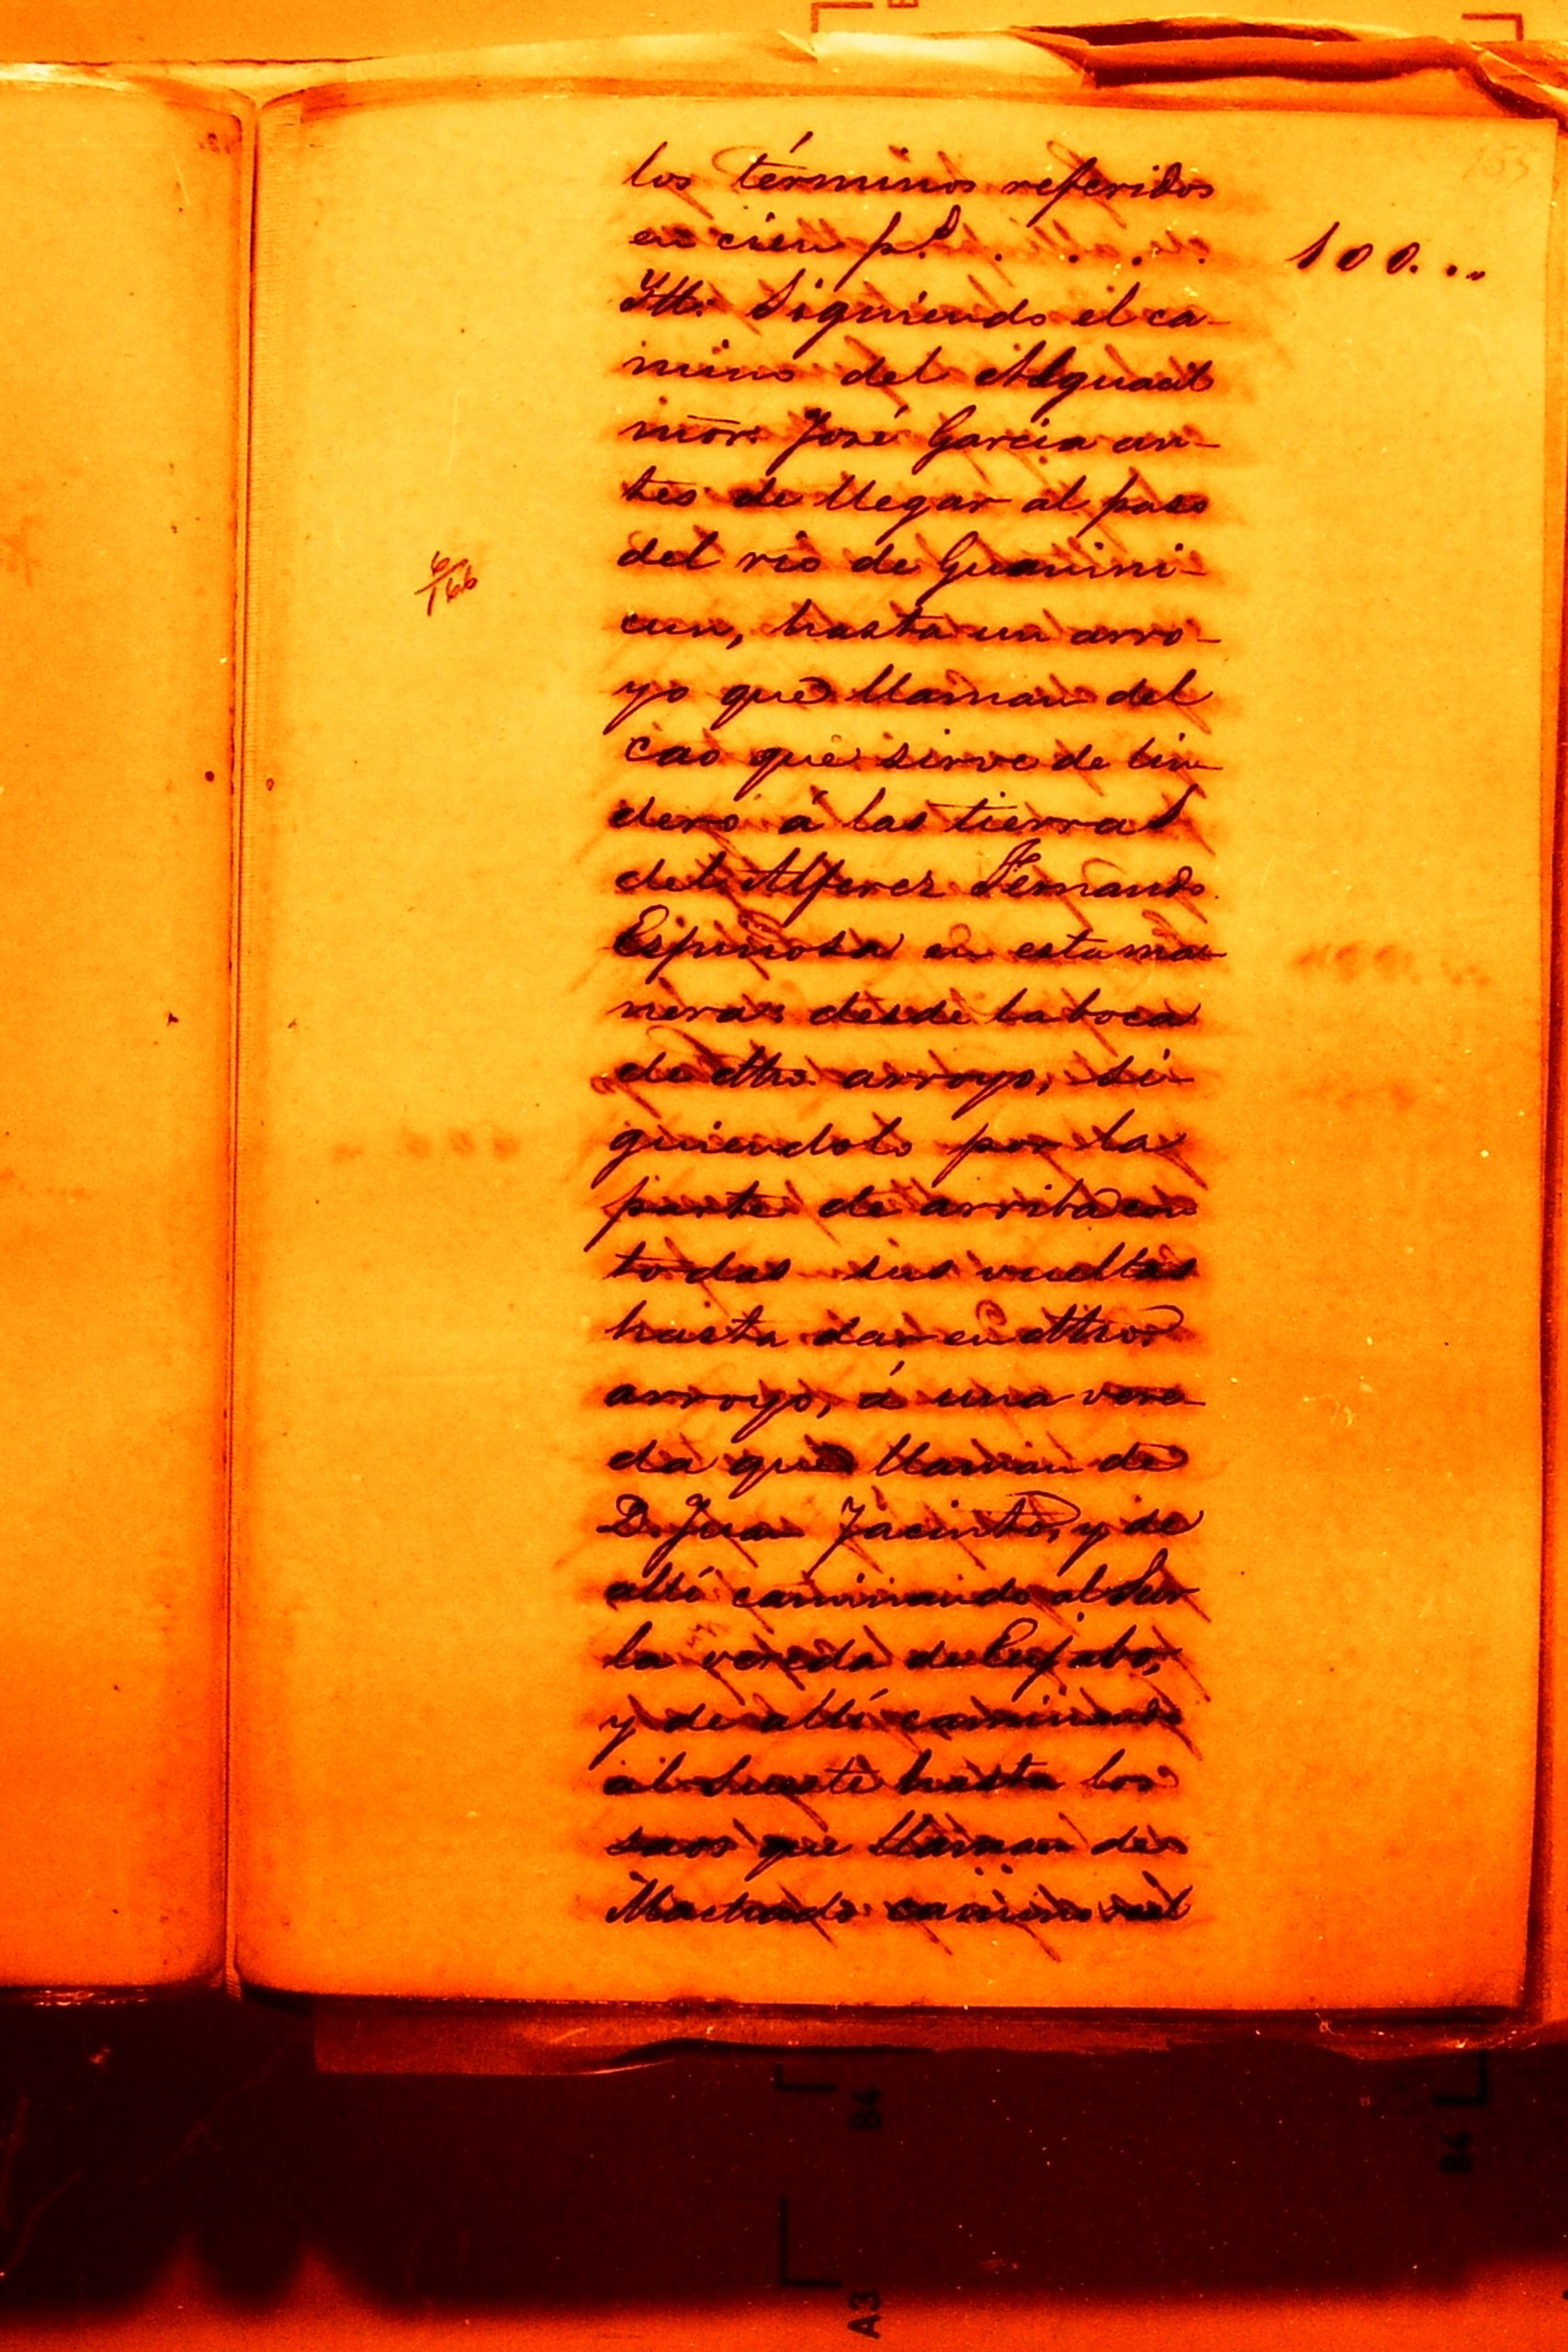 155
los términos referidos
en cien p.s . . . . . 100...
Ytt: Siguiendo el ca-
mino del Alguacil
mor: José Garcia an-
tes de llegar al paso
del rio de Guanini-
cun, hasta un arro-
yo que llaman del
cao que sirve de lin-
dero á las tierras
del Alferez Fernando
Espinosa en esta ma-
nera: desde la boca
de dho. arroyo, si-
guiendolo por la
parte de arriba con
todas sus vueltas
hasta dar en dho
arroyo, á una vere-
da que llaman de
D. Juan Jacinto, y de
allí caminando al Sur
la vereda de
y de allí caminando
al hasta los
que llaman de
Machado camino real
6/166
B4
B4
A3